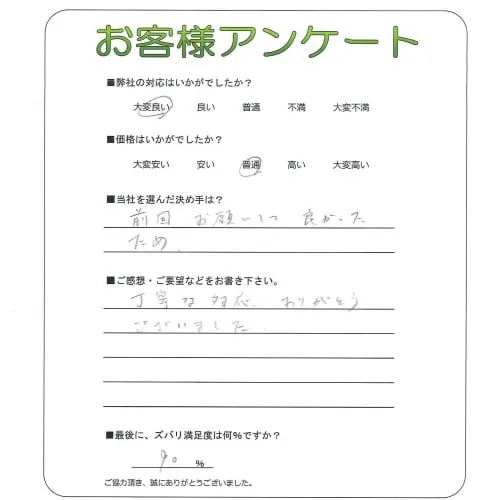 お客様アンケート
■弊社の対応はいかがでしたか？
大変良い 良い 普通 不満 大変不満
■価格はいかがでしたか？
大変安い 安い 普通 高い 大変高い
■当社を選んだ決め手は？
前回 お願いして 良かった
ため、
■ご感想・ご要望などをお書き下さい。
丁寧な対応、ありがとう
ございました。
■最後に、ズバリ満足度は何%ですか？
90 %
ご協力頂き、誠にありがとうございました。